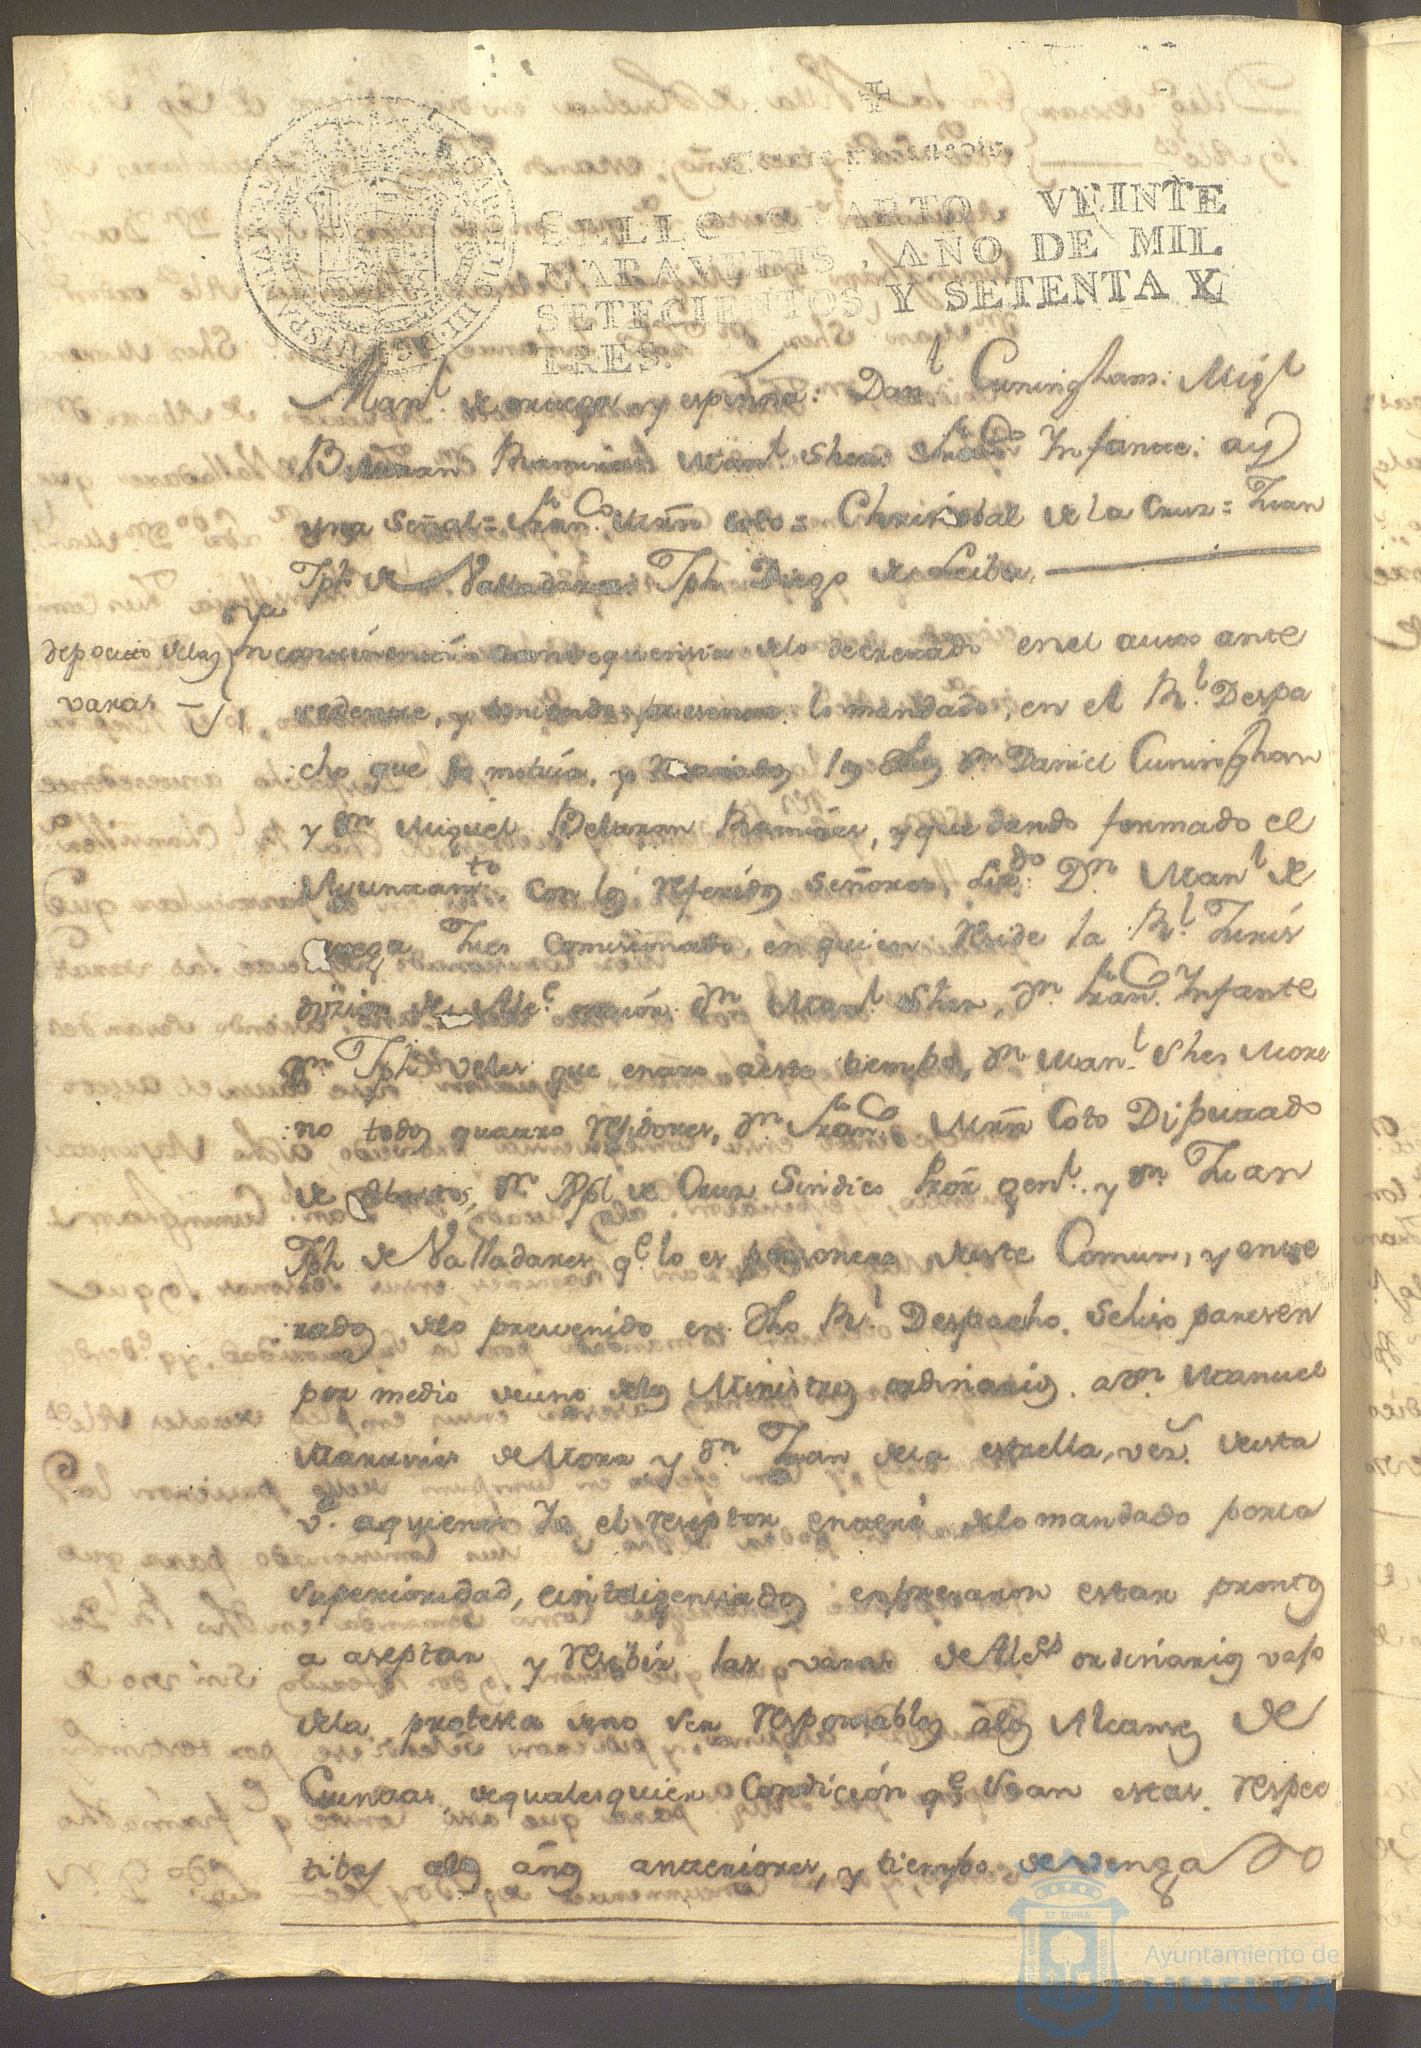 SELLO QUARTO, VEINTE
MARAVEDIS, AÑO DE MIL
SETECIENTOS Y SETENTA Y
TRES.
Manl. de ortega y espinosa: Danl Cuningham: Migl
Beltran Ramires Manl. Shes. Franco Infante: ay
una señal = Franco. Mrn Coto = Christobal de la Cruz = Juan
Jph de Valladares Jph Diego de Leiba,
deposito delas
varas
En continuasion consequensia delo decretado en el auto ante
cedente, y teniendo presente lo mandado, en el Rl. Despa
cho que lo motiva, y los dhos Dn Daniel Cuningham
y Dn Miguel Beltran Ramires, y quedando formado el
Ayuntamto con los referidos señores, Lizdo. Dn Manl de
ortega Jues Comisionado, en quien reside la Rl. Juris
dizion Dn Manl Shes, Dn. Franco. Infante
Dn. Jph veles que entro a este tiempo, Dn Manl Shes More
no todos quatro residores, Dn Franco Mrn Coto Diputado
de Abastos, Dn Xptl de Cruz Sindico Pror genl. y Dn Juan
Jph de Valladares qe lo es personero deeste Comun, y ente
rados delo prevenido en dho Rl Despacho. se hiso paresen
por medio deuno delos Ministros ordinarios. a Dn Manuel
Martinis de Mora y Dn Juan dela estrella, vez. deesta
va. aquienes Yo el reseptor enteré delo mandado porla
superioridad, e inteligensiados expresaron estar promtos
a aseptar y resibir las varas de Aldes ordinarios vaso
dela protesta deno ser responsables á los Alcanses de
Cuentas, dequalesquier Condición qe sean estas respec
tibas alos años anteriores, y tiempo devengado
Ayuntamiento de
HUELVA